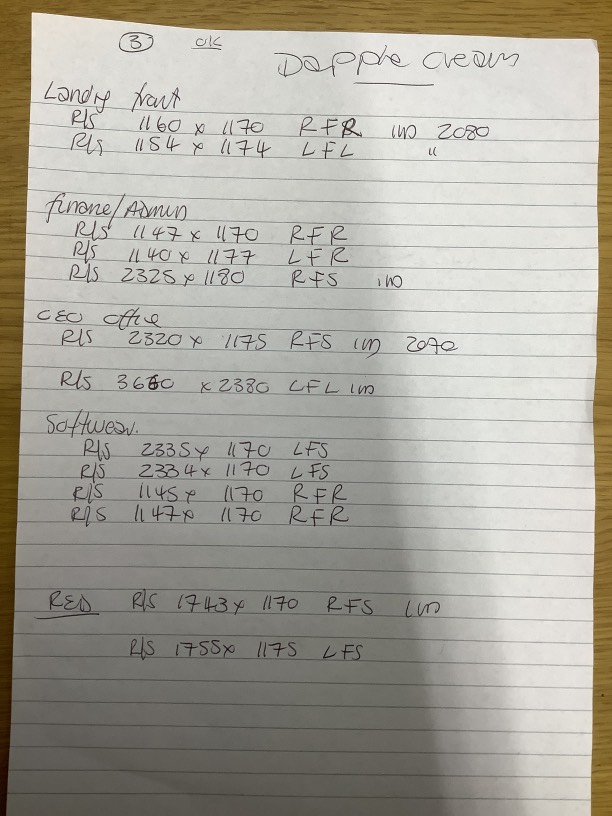 3 OK Dapple cream
Landry front
R/S 1160 x 1170 RFR 2080
R/S 1154 x 1174 LFL "
finane/Admin
R/S 1147 x 1170 RFR
R/S 1140 x 1177 LFR
R/S 2325 x 1180 RFS
CEO office
R/S 2320 x 1175 RFS
R/S x 2380 LFL
Softwear.
R/S 2335 x 1170 LFS
R/S 2334 x 1170 LFS
R/S 1145 x 1170 RFR
R/S 1147 x 1170 RFR
RED R/S 1743 x 1170 RFS
R/S 1755 x 1175 LFS